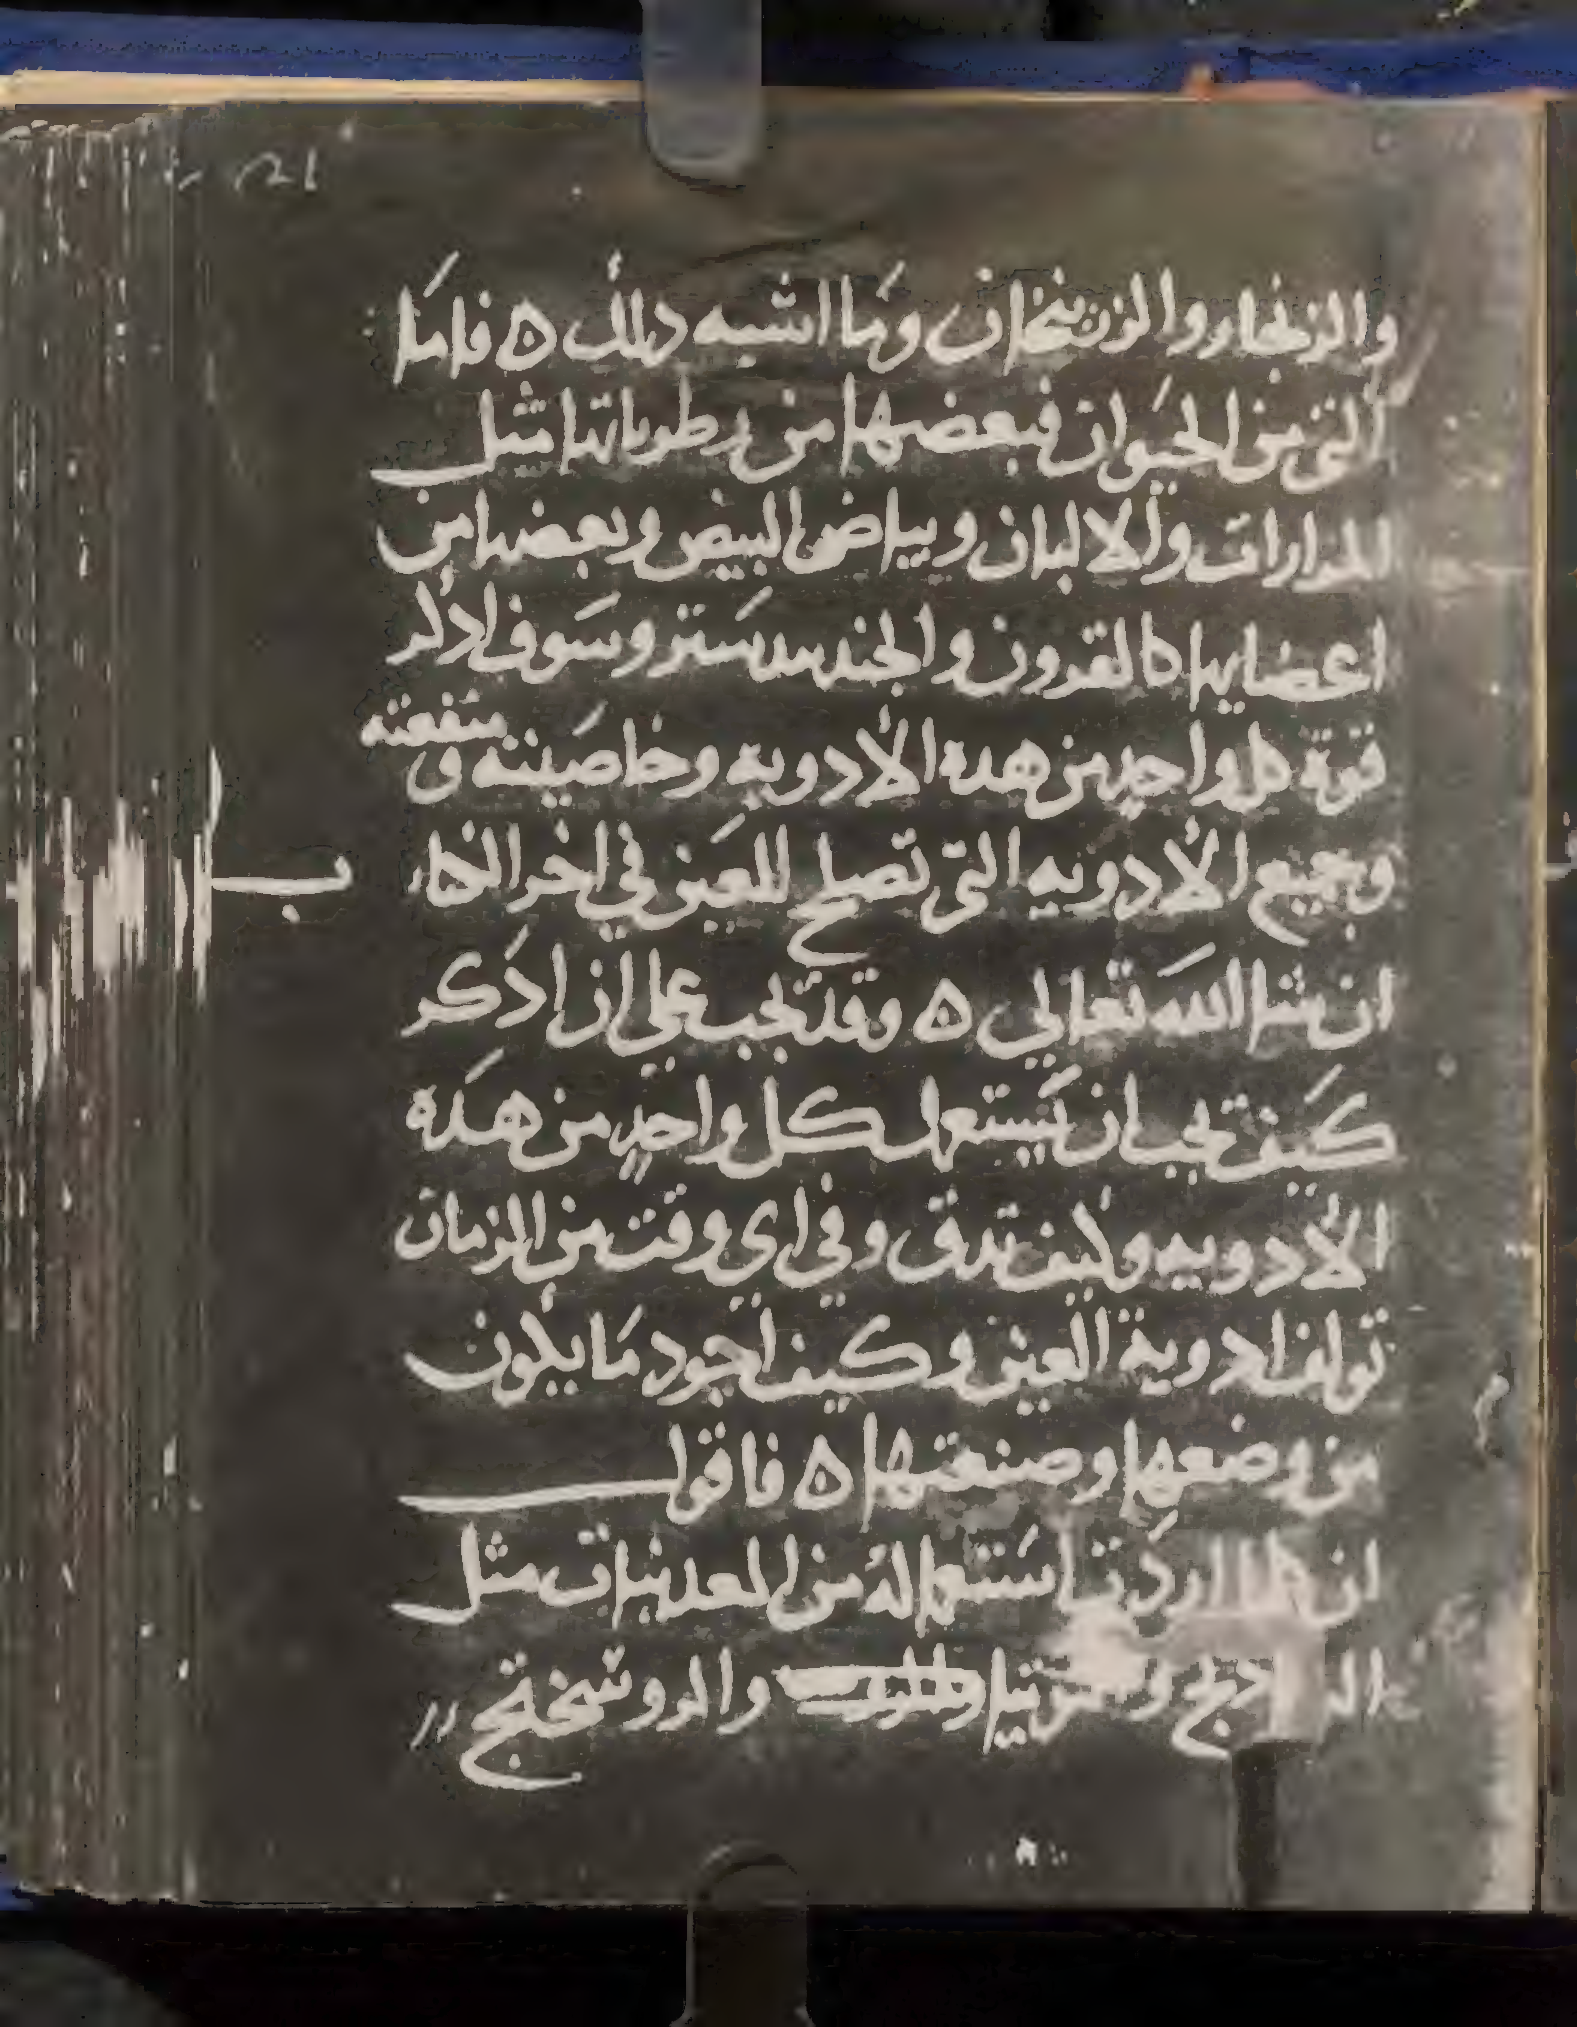 والزنجار والزرنيخان وما اشبه ذلك ه فاما
التي من الحيوان فبعضها من رطوباتها مثل
المرارات والالبان وبياض البيض وبعضها من
اعضايها كالقرون والجندبيدستر وسوف اذكر
قوة كل واحد من هذه الأدويه وخاصيته و منفعته
وجميع الأدويه التي تصلح للعين في اخر الكتاب
ان شا الله تعالي ه وقد يجب علي ان اذكر
كيف يجب ان يستعمل كل واحدٍ من هذه
الأدويه وكيف تدق وفي اي وقت من الزمان
تولف ادوية العين وكيف اجود ما يكون
من وضعها وصنعتها ه فاقول
ان كلما اردت استعماله من المعدنيات مثل
والروسختج